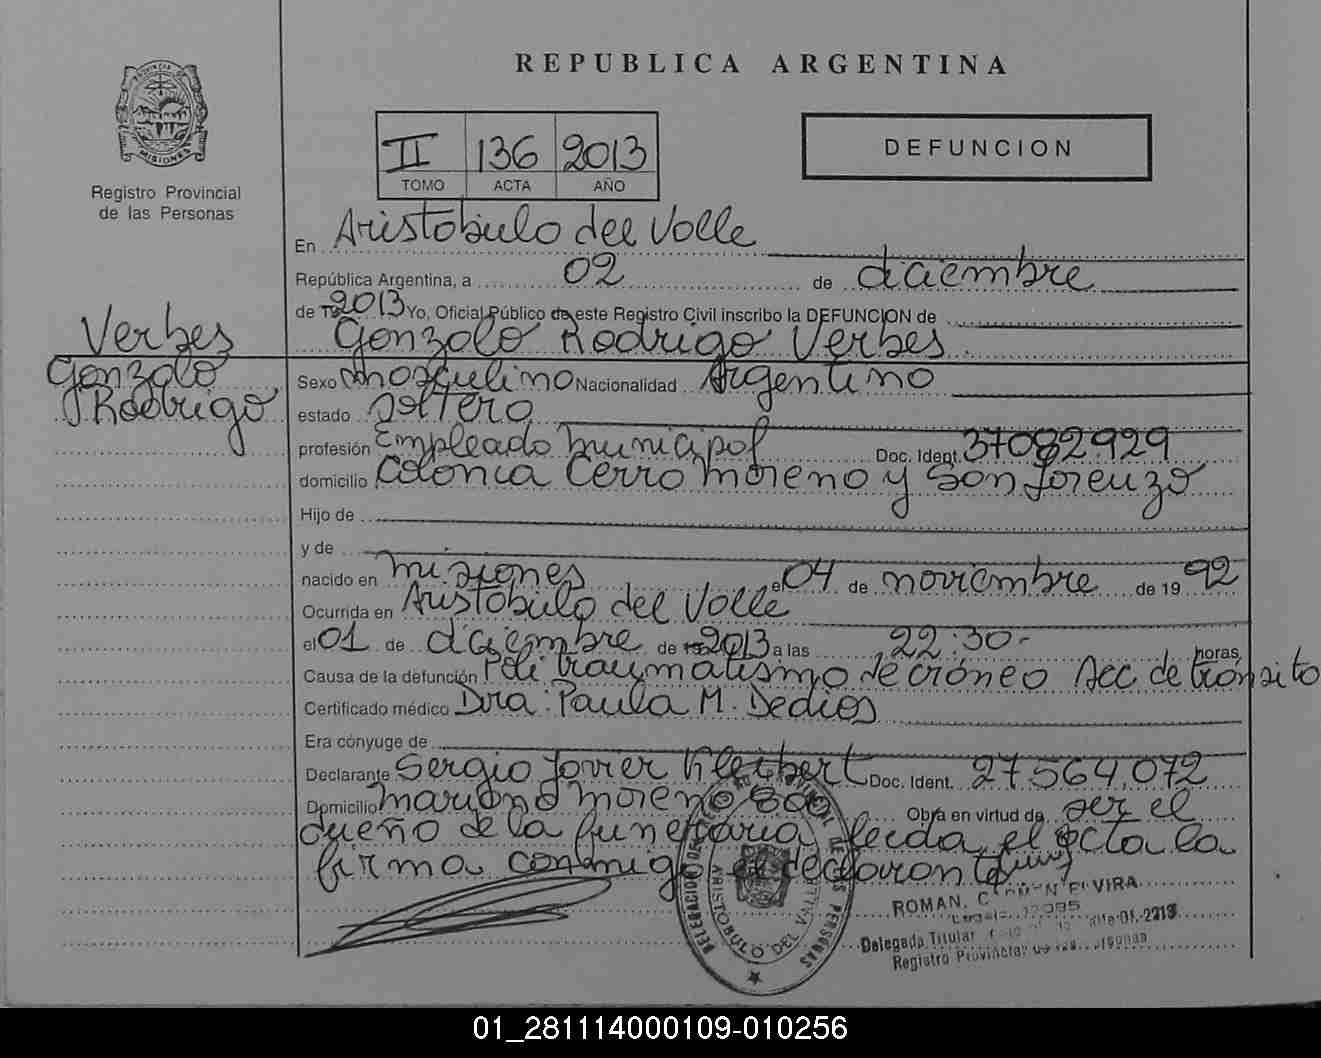 REPUBLICA ARGENTINA
PROVINCIA DE
MISIONES
Registro Provincial
de las Personas
II 136 2013
TOMO ACTA AÑO
DEFUNCION
En Aristobulo del Valle
República Argentina, a 02 de diciembre
de 2013 Yo, Oficial Público de este Registro Civil inscribo la DEFUNCION de
Gonzalo Rodrigo Verbes
Verbes
Gonzalo
Rodrigo
Sexo masculino Nacionalidad Argentino
estado soltero
profesión Empleado municipal Doc. Ident. 37082929
domicilio Colonia Cerro Moreno y San Lorenzo
Hijo de
y de
nacido en misiones el 04 de noviembre de 19 92
Ocurrida en Aristobulo del Valle
el 01 de diciembre de 2013 a las 22:30- horas
Causa de la defunción Politraumatismo de cráneo Acc de tránsito
Certificado médico Dra. Paula M. Dedios
Era cónyuge de
Declarante Sergio Javier Kleibert Doc. Ident. 27.564.072
Domicilio mariano moreno 800 Obra en virtud de ser el
dueño de la funeraria, leida el acta la
firma conmigo el declarante
DELEGACION PROVINCIAL DE LAS PERSONAS
ARISTOBULO DEL VALLE
ROMAN, CARMEN ELVIRA
Delegada Titular
Registro Provincial de las Personas
01_281114000109-010256